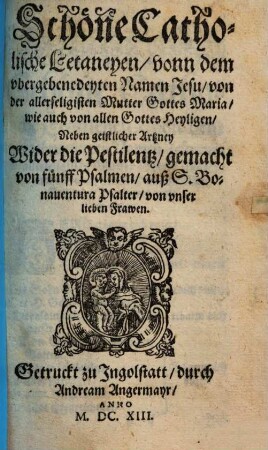 Schöne Catho-
lische Letaneyen / vonn dem
vbergebenedeyten Namen Jesu / von
der allerseligisten Mutter Gottes Maria /
wie auch von allen Gottes Heyligen /
Neben geistlicher Artzney
Wider die Pestilentz / gemacht
von fünff Psalmen / auß S. Bo-
nauentura Psalter / von vnser
lieben Frawen.
Getruckt zu Ingolstatt / durch
Andream Angermayr /
ANNO
M. DC. XIII.